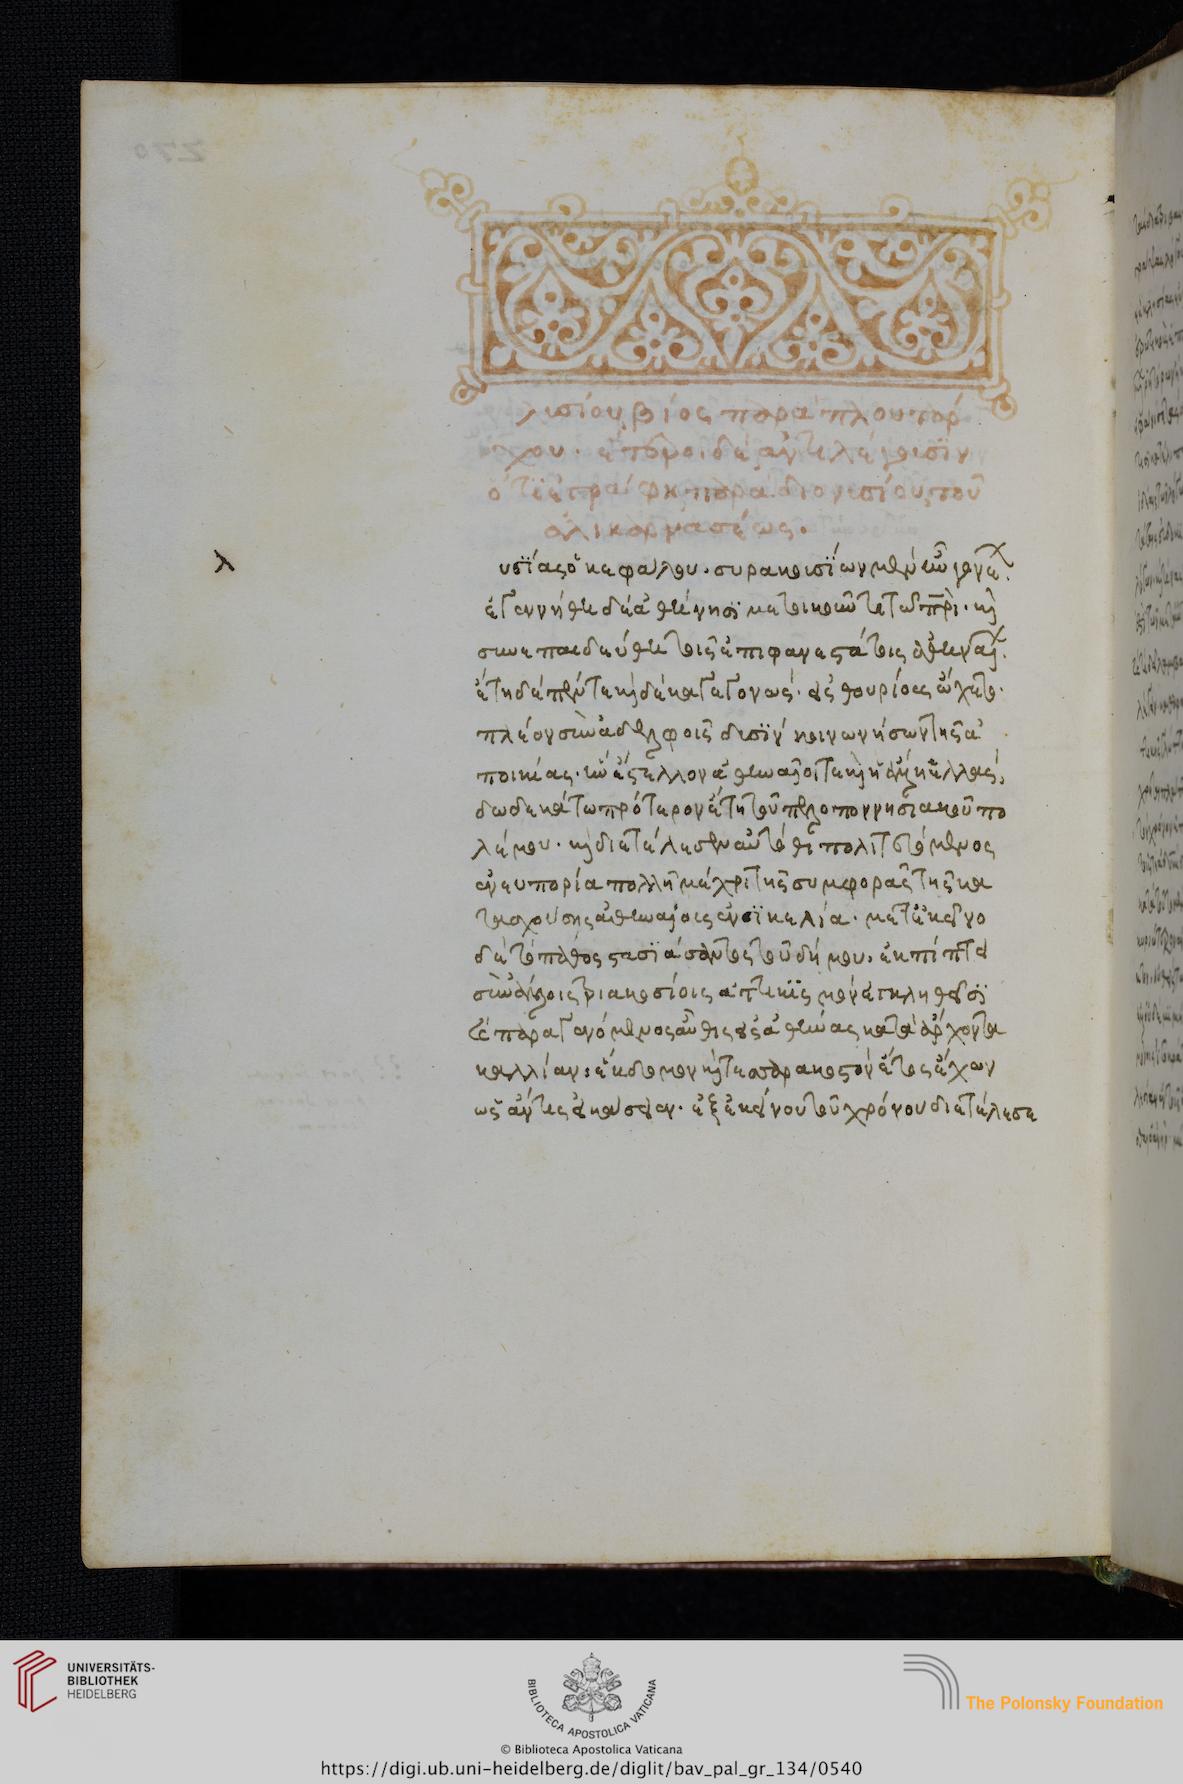 λυσίου βίος παρὰ πλουτάρ
χου. ἕτεροι δέ
ὅτι ἐγράφη παρὰ διονυσίου τοῦ
ἁλικαρνασέως.
λ υσίας ὁ κεφάλου. συρακουσίων μὲν ἦν γονέων.
ἐγεννήθη δὲ ἀθήνησι μετοικοῦντι τῷ πρὶ. κὶ
συνεπαιδεύθη τοῖς ἐπιφανεστάτοις ἀθηναίων.
ἔτη δὲ πέντε κὶ δέκα γεγονώς. εἰς θουρίους ᾤχετο.
πλέον σὺν ἀδελφοῖς δυσίν κοινωνήσων τῆς ἀ
ποικίας. ἣν ἔστελλον ἀθηναῖοί τε κὶ ἡ ἄλλη ἑλλάς,
δωδεκάτω πρότερον ἔτη τοῦ πελοποννησιακοῦ πο
λέμου. κὶ διετέλεσεν αὐτόθι πολιτευόμενος
ἐν εὐπορία πολλῆ μέχρι τῆς συμφορᾶς τῆς κα
τασχούσης ἀθηναίοις ἐν σικελία. μετ' ἐκεῖνο
δὲ τὸ πάθος στασιάσαντος τοῦ δήμου. ἐκπίπτει
σὺν ἄλλοις τριακοσίοις ἀττικισμὸν ἐγκληθεῖσι
παραγενόμενος αὖθις εἰς ἀθήνας κατὰ ἄρχοντα
καλλίαν. ἕκδομον κὶ τεσσαρακοστὸν ἔτος ἔχων
ὡς ἄν τις εἰκάσειεν. ἐξ ἐκείνου τοῦ χρόνου διετέλεσε
270
UNIVERSITÄTS-
BIBLIOTHEK
HEIDELBERG
BIBLIOTECA APOSTOLICA VATICANA
The Polonsky Foundation
© Biblioteca Apostolica Vaticana
https://digi.ub.uni-heidelberg.de/diglit/bav_pal_gr_134/0540